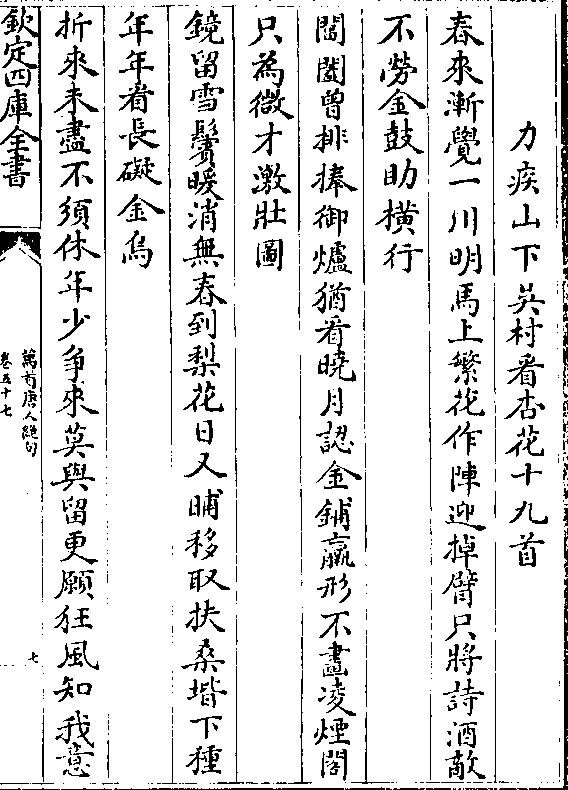 力疾山下吳村看杏花十九首
春來漸覺一川明馬上繁花作陣迎掉臂只將詩酒敵
不勞金鼓助橫行
閶闔曾排捧御爐猶看曉月認金鋪羸形不畫凌煙閣
只為微才激壯圖
鏡留雪鬢暖消無春到梨花日又晡移取扶桑堦下種
年年看長礙金烏
折來未盡不須休年少爭來莫與留更願狂風知我意
欽定四庫全書
萬首唐人絕句
卷五十七
七